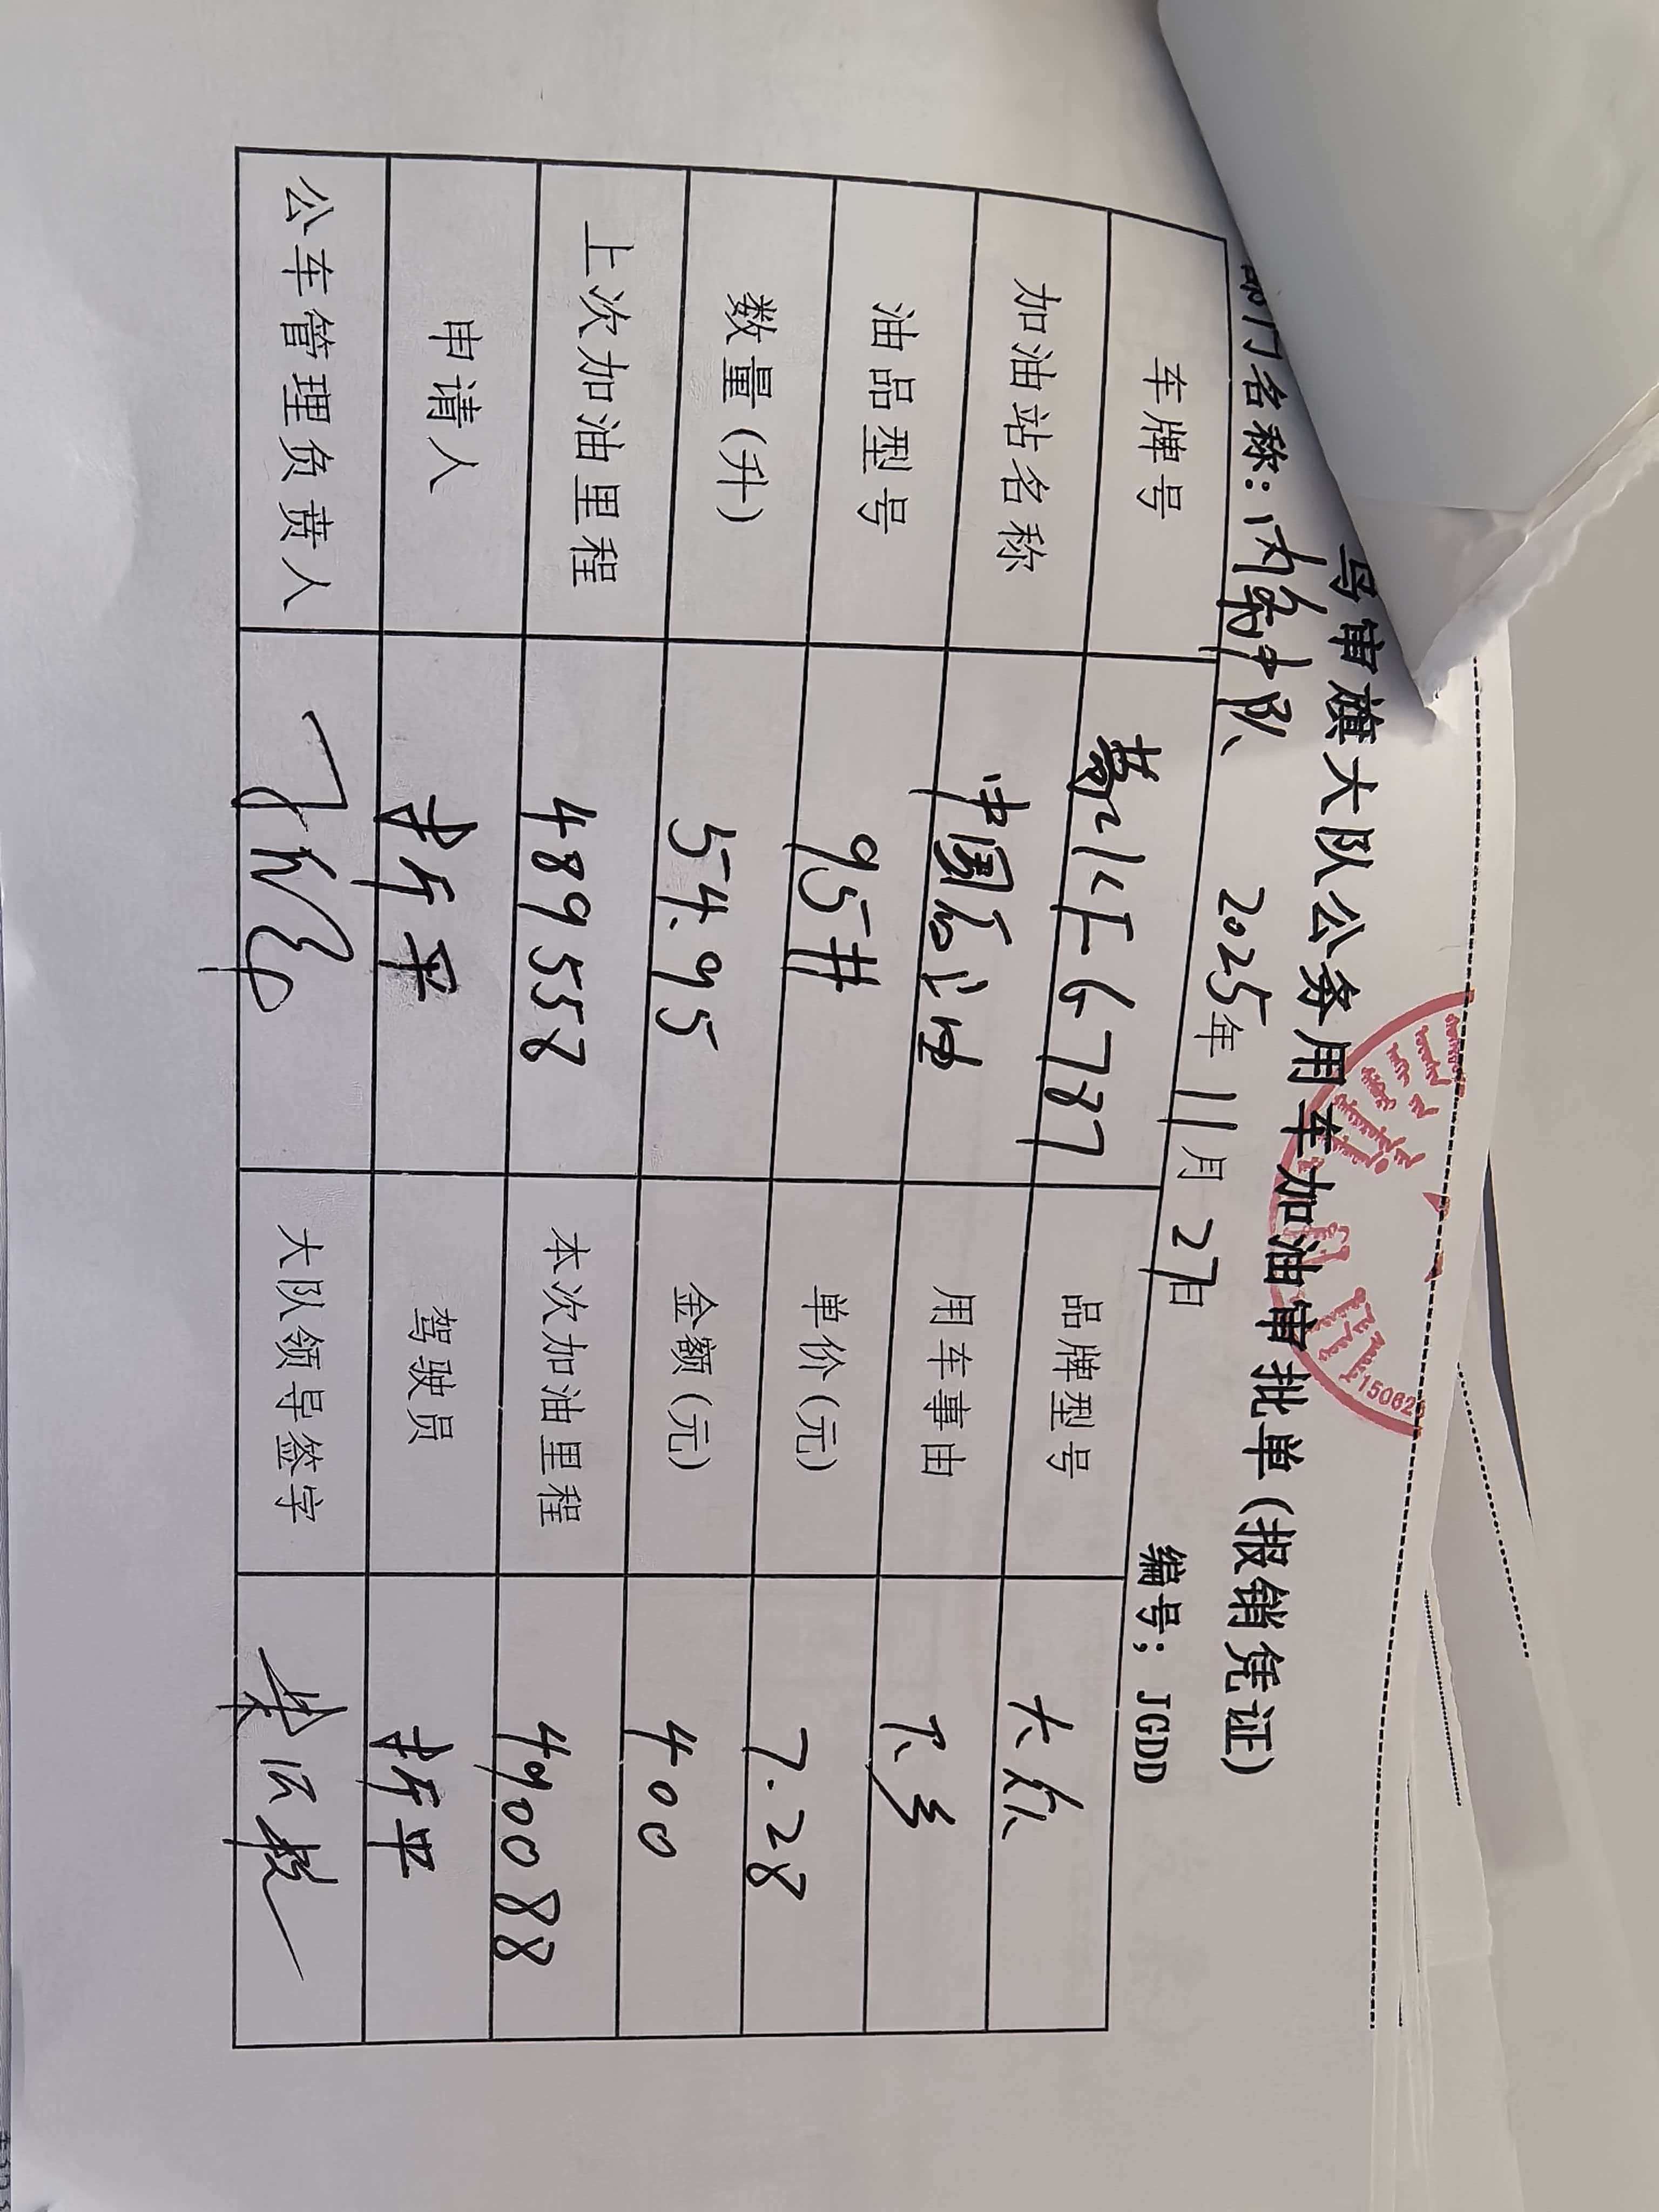 审旗大队公务用车加油审批单(报销凭证)
门名称: 内勤中队 2025年 11月 27日 编号; JGDD
车牌号 蒙KE6787 品牌型号 大众
加油站名称 中国石油 用车事由 下乡
油品型号 95# 单价(元) 7.28
数量(升) 54.95 金额(元) 400
上次加油里程 489558 本次加油里程 490088
申请人 驾驶员
公车管理负责人 大队领导签字
15062